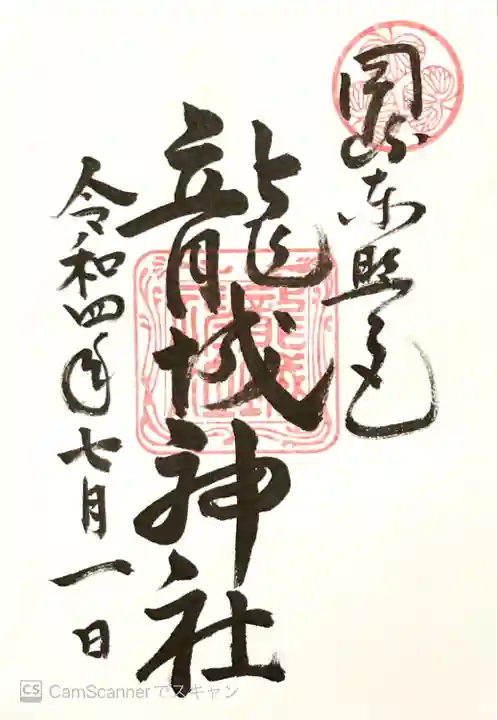 岡崎東照宮
龍城神社
令和四年七月一日
CamScannerでスキャン